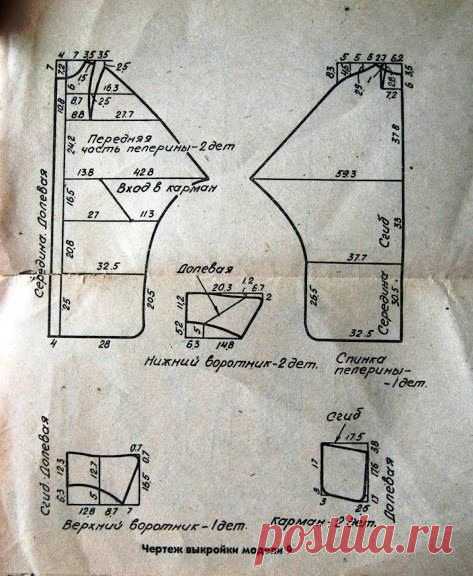 4 7 3.5 3.5
7
7.2
15
2.5
6
16.3
8.7
2.5
8.8
27.7
10.8
24.2
Передняя
часть пелерины-2дет
13.8
42.8
Вход в карман
16.5
27
11.3
Середина. Долевая
20.8
32.5
25
20.5
4
28
5 5 6 2.3 6.2
8.3
4.5
2.5
2.8
7.2
6
3.5
37.8
59.3
Сгиб
33
37.7
26.5
Середина
30.5
32.5
Спинка
пелерины-
-1дет.
Долевая
1.2
20.3
6.7
2
11.2
5.2
5
6.3
14.8
Нижний воротник-2дет.
Сгиб-Долевая
12.3
12.7
0.7
0.7
16.5
6.3
5
12.8 8.7 7
Верхний воротник-1дет.
Сгиб
17.5
3.8
17
17.6
Долевая
3
3
2.5
13
Карман-2дет.
Чертеж выкройки модели 9
postila.ru